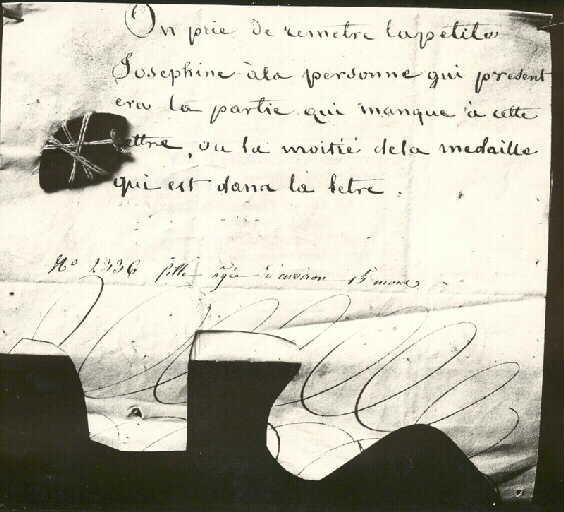 On prie de remetre lapetite
Josephine à la personne qui present
era la partie qui manque à cette
lettre, ou la moitié dela medaille
qui est dans la letre.
No 2336 fille agée d'environ 15 mois